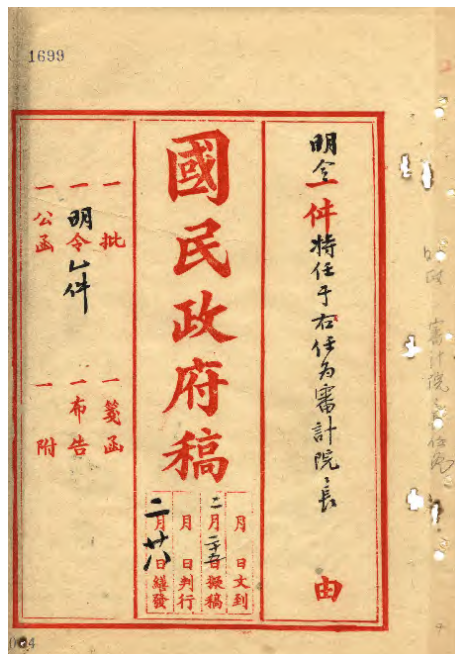 1699
明令一件特任于右任為審計院長
由
國民政府稿
月 日文到
二月二五日擬稿
月 日判行
二月廿八日繕發
一批
一明令乙件
一公函
一箋函
一布告
一附